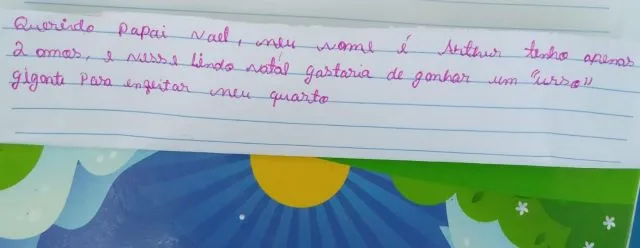 Querido Papai Nael, meu nome é Arthur tenho apenas
2 anos, e nesse lindo natal gastaria de ganhar um "urso"
gigante para enfeitar meu quarto